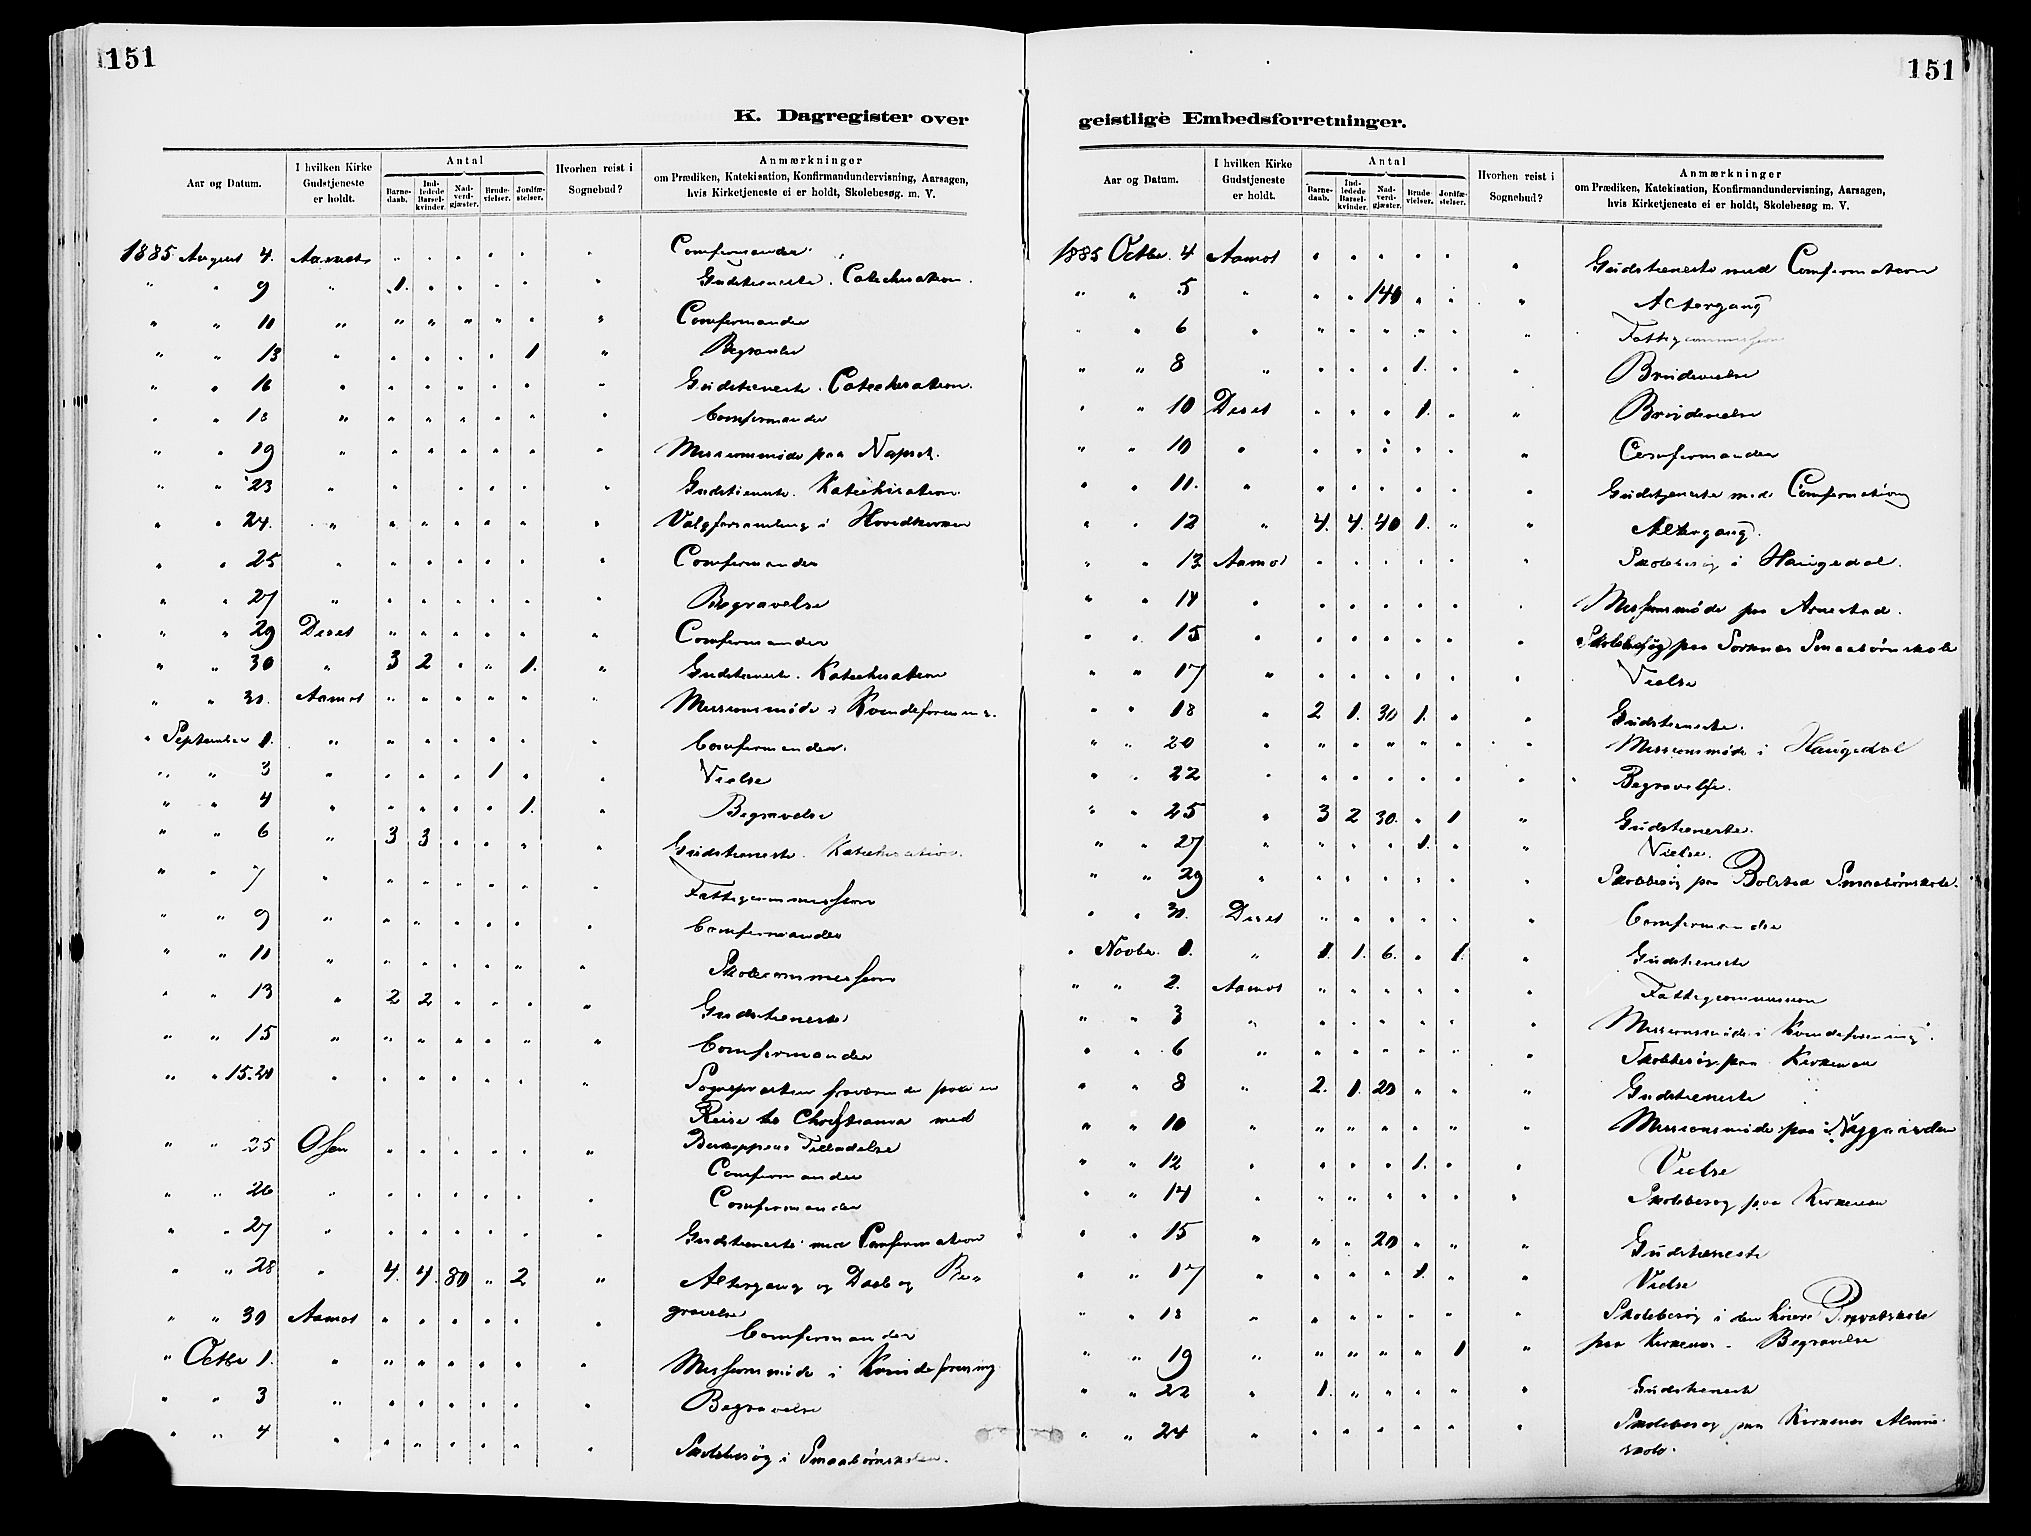 151
K. Dagregister over
Aar og Datum.
I hvilken Kirke Gudstjeneste er holdt.
Antal
Barne-daab.
Ind-ledede Barsel-kvinder.
Nad-verd-gjæster.
Brude-vielser.
Jordfæ-stelser.
Hvorhen reist i Sognebud?
Anmærkninger
om Prædiken, Katekisation, Konfirmandundervisning, Aarsagen,
hvis Kirketjeneste ei er holdt, Skolebesøg. m. V.
1885 August 4. Aamot " " " " " " Comfirmander
" " 9 " 1. " " " " " Gudstieneste. Catechisation.
" " 11 " " " " " " " Comfirmander
" " 13 " " " " " 1 " Begravelse
" " 16 " " " " " " " Gudstieneste. Catechisation.
" " 18 " " " " " " " Comfirmander
" " 19 " " " " " " " Missionsmøde paa Napset.
" " 23 " " " " " " Gudstieneste. Katechisation.
" " 24. " " " " " " " Valgforsamling i Hovedkirken
" " 25 " " " " " " " Comfirmander
" " 27 " " " " " " " Begravelse
" " 29 Deset " " " " " " Comfirmander
" " 30 " 3 2 " " 1. " Gudstieneste. Katechisation
" " 31. Aamot " " " " " " Missionsmøde i Kvindeforening.
" September 1. " " " " " " " Comfirmander.
" " 3 " " " " 1 " " Vielse
" " 4 " " " " " 1. " Begravelse
" " 6 " 3 3 " " " " Gudstieneste. Katechisation.
" " 7 " " " " " " " Fattigcommission
" " 9 " " " " " " " Comfirmander
" " 11 " " " " " " " Skolecommission
" " 13 " 2 2 " " " " Gudstieneste
" " 15 " " " " " " " Comfirmander
" " 15-21 " " " " " " " Sognepræsten fraværende paa en
Reise til Christiania med
Biskoppens Tilladelse
" " 25 Osen " " " " " " Comfirmander
" " 26 " " " " " " " Comfirmander
" " 27 " " " " " " " Gudstieneste med Comfirmation
" " 28 " 4. 4. 80 " 2 " Altergang og Daab og Be-
gravelse
" " 30 Aamot " " " " " " Comfirmander
" Octbr 1. " " " " " " " Missionsmøde i Kvindeforening
" " 3 " " " " " " " Begravelse
" " 4 " " " " " " " Skolebesøg i Smaabørnskolen.
151
geistlige Embedsforretninger.
Aar og Datum.
I hvilken Kirke Gudstjeneste er holdt.
Antal
Barne-daab.
Ind-ledede Barsel-kvinder.
Nad-verd-gjæster.
Brude-vielser.
Jordfæ-stelser.
Hvorhen reist i Sognebud?
Anmærkninger
om Prædiken, Katekisation, Konfirmandundervisning, Aarsagen,
hvis Kirketjeneste ei er holdt, Skolebesøg m. V.
1885 Octbr. 4 Aamot " " " " " " Gudstieneste med Comfirmation
" " 5 " " " 140 " " " Altergang
" " 6 " " " " " " " Fattigcommission
" " 8 " " " " 1. " " Brudevielse
" " 10 Deset " " " 1. " " Brudevielse
" " 10 " " " " " " " Comfirmander
" " 11. " " " " " " " Gudstjeneste med Comfirmation
" " 12 " 4. 4. 40 1. " " Altergang.
" " 13 Aamot " " " " " " Skolebesøg i Haugedal.
" " 14 " " " " " " " Missionsmøde paa Arnestad.
" " 15 " " " " " " " Skolebesøg paa Sorknæs Smaabørnskole
" " 17 " " " " " " " Vielse
" " 18 " 2 1. 30 1. " " Gudstieneste.
" " 20 " " " " " " " Missionsmøde i Haugedal
" " 22 " " " " " " " Begravelse.
" " 25 " 3 2 30. " 1 " Gudstieneste.
" " 27 " " " " 1. " " Vielse.
" " 29 " " " " " " " Skolebesøg paa Bolstad Smaabørnskole.
" " 31. Deset " " " " " " Comfirmander
" Novbr. 1. " 1. 1. 6. " 1. " Gudstieneste
" " 2. Aamot " " " " " " Fattigcommission
" " 3 " " " " " " " Missionsmøde i Kvindeforening.
" " 6 " " " " " " " Skolebesøg paa Kirkenær
" " 8 " 2. 1. 20 " " " Gudstieneste
" " 10 " " " " " " " Missionsmøde paa
" " 12 " " " " 1. " " Vielse
" " 14 " " " " " " " Skolebesøg paa Kirkenær
" " 15 " " " 20 " " " Gudstieneste
" " 17 " " " " 1. " " Vielse
" " 18 " " " " " " " Skolebesøg i den høiere Privatskole
paa Kirkenær. Begravelse
" " 19 " " " " " 1 "
" " 22 " 1. " " " " " Gudstieneste
" " 24 " " " " " " " Skolebesøg paa Kirkenær Almue-
skole.